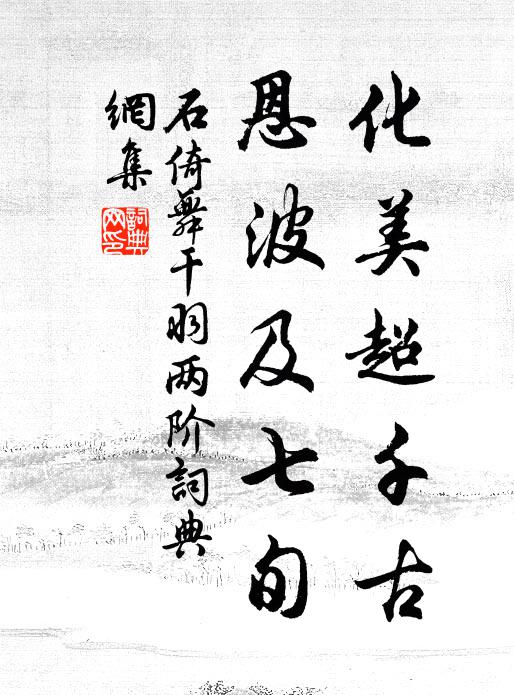 化美超千古
恩波及七旬
石倚舞干羽两阶詞典
網集
詞典
网印